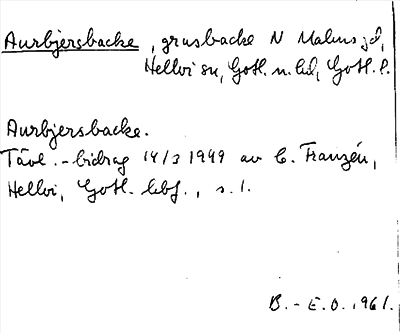 Aurbjersbacke, grusbacke N Malms jd,
Hellvi sn, Gotl. n. hd, Gotl. l.
Aurbjersbacke.
Tävl.-bidrag 14/3 1949 av C. Franzén,
Hellvi, Gotl. hbf., s. 1.
B.-E.O. 1961.